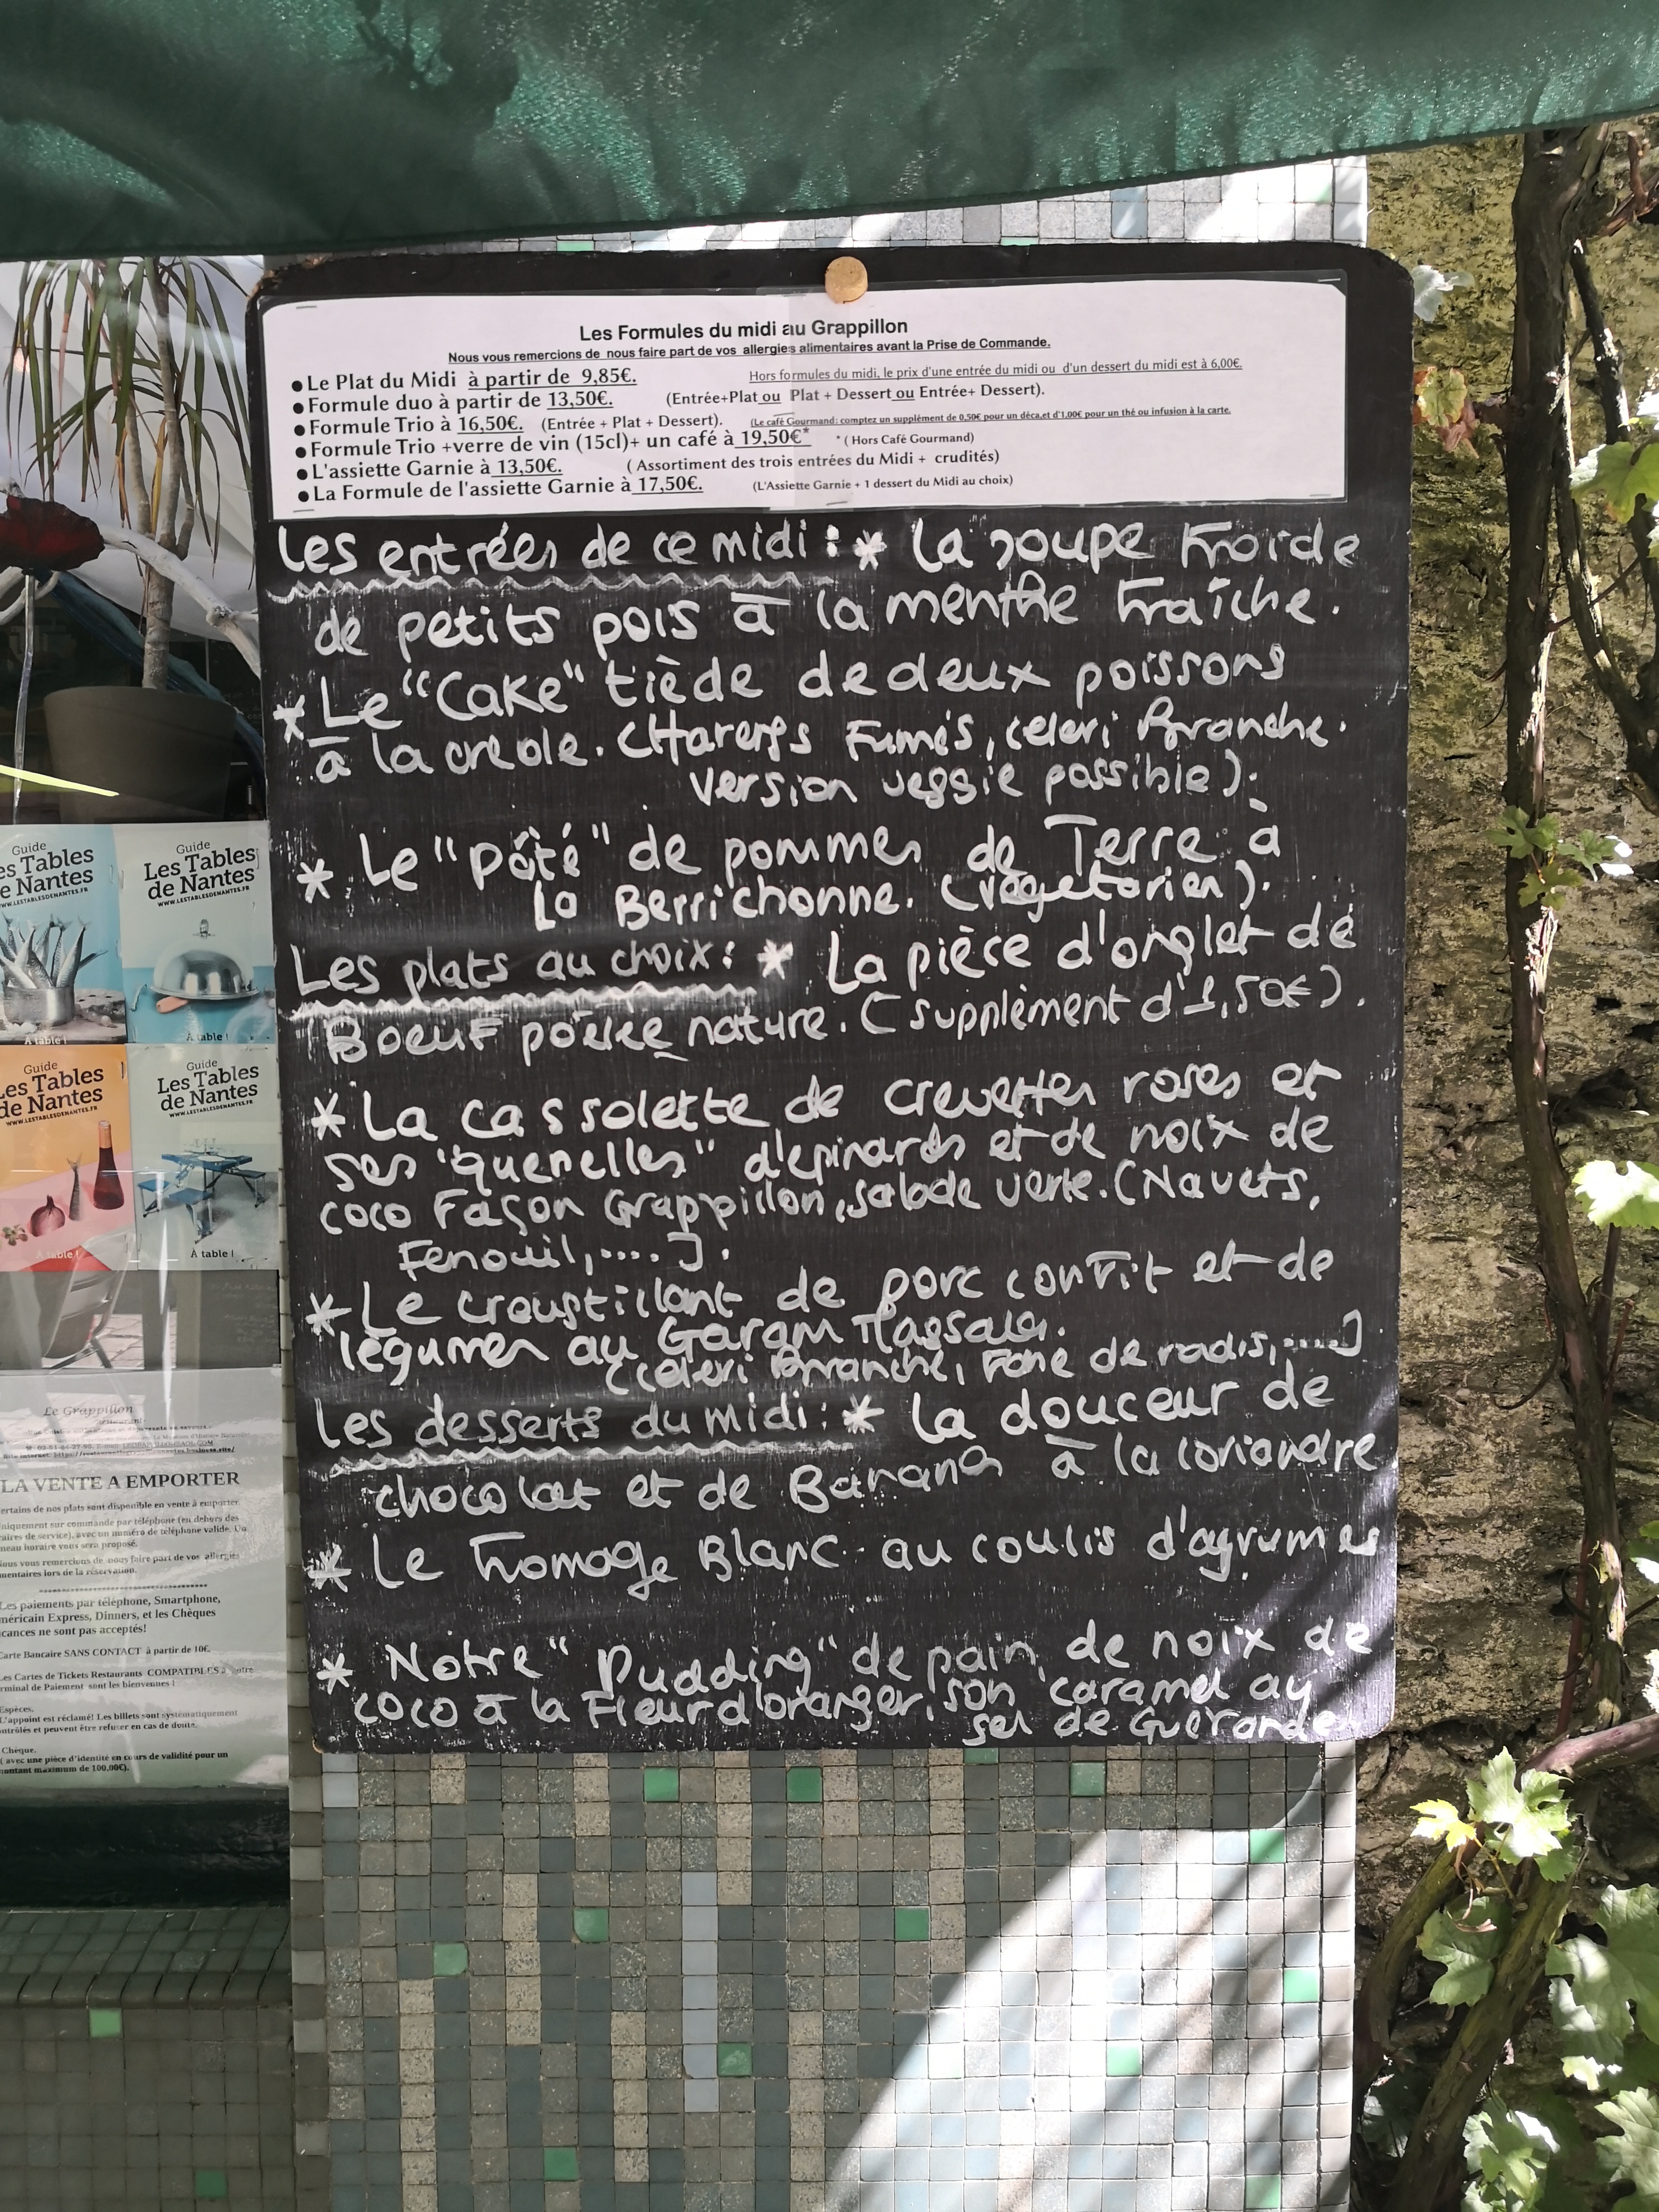 Les Formules du midi au Grappillon
Nous vous remercions de nous faire part de vos allergies alimentaires avant la Prise de Commande.
● Le Plat du Midi à partir de 9,85€. Hors formules du midi, le prix d'une entrée du midi ou d'un dessert du midi est à 6,00€.
● Formule duo à partir de 13,50€. (Entrée+Plat ou Plat + Dessert ou Entrée+ Dessert).
● Formule Trio à 16,50€. (Entrée + Plat + Dessert). (Le café Gourmand: comptez un supplément de 0,50€ pour un déca,et d'1,00€ pour un thé ou infusion à la carte.
● Formule Trio +verre de vin (15cl)+ un café à 19,50€* * ( Hors Café Gourmand)
● L'assiette Garnie à 13,50€. ( Assortiment des trois entrées du Midi + crudités)
● La Formule de l'assiette Garnie à 17,50€. (L'Assiette Garnie + 1 dessert du Midi au choix)
Les entrées de ce midi : * La soupe froide
de petits pois à la menthe fraîche.
* Le "Cake" tiède de deux poissons
à la creole. (Harengs Fumés, celeri Branche.
version veggie possible).
* Le "Pâté" de pommes de Terre à
La Berrichonne. (végetarien).
Les plats au choix : * La pièce d'onglet de
Boeuf poêlée nature. (supplèment d'1,50€).
* La cassolette de crevettes roses et
ses "quenelles" d'epinards et de noix de
coco Façon Grappillon, salade verte. (Navets,
Fenouil,....).
* Le croustillant de porc confit et de
légumes au Garam Massala.
(celeri Branche, Fane de radis,....)
Les desserts du midi : * La douceur de
chocolat et de Banana à la coriandre
* Le fromage Blanc au coulis d'agrumes
* Notre "Pudding" de pain, de noix de
coco à la Fleur d'oranger, son caramel au
sel de Guérande
Guide
Les Tables
de Nantes
WWW.LESTABLESDENANTES.FR
À table !
Guide
Les Tables
de Nantes
WWW.LESTABLESDENANTES.FR
À table !
Guide
Les Tables
de Nantes
WWW.LESTABLESDENANTES.FR
À table !
Guide
Les Tables
de Nantes
WWW.LESTABLESDENANTES.FR
À table !
Le Grappillon
LA VENTE A EMPORTER
ertains de nos plats sont disponible en vente à emporter.
niquement sur commande par téléphone (en dehors des
aires de service), avec un numéro de téléphone valide. Un
neau horaire vous sera proposé.
Nous vous remercions de nous faire part de vos allergies
mentaires lors de la réservation.
Les paiements par téléphone, Smartphone,
méricain Express, Dinners, et les Chèques
cances ne sont pas acceptés!
Carte Bancaire SANS CONTACT à partir de 10€.
Les Cartes de Tickets Restaurants COMPATIBLES à notre
rminal de Paiement sont les bienvenues !
Espèces.
L'appoint est réclamé! Les billets sont systématiquement
ntrôlés et peuvent être refuser en cas de doute.
Chèque.
( avec une pièce d'identité en cours de validité pour un
montant maximum de 100,00€).